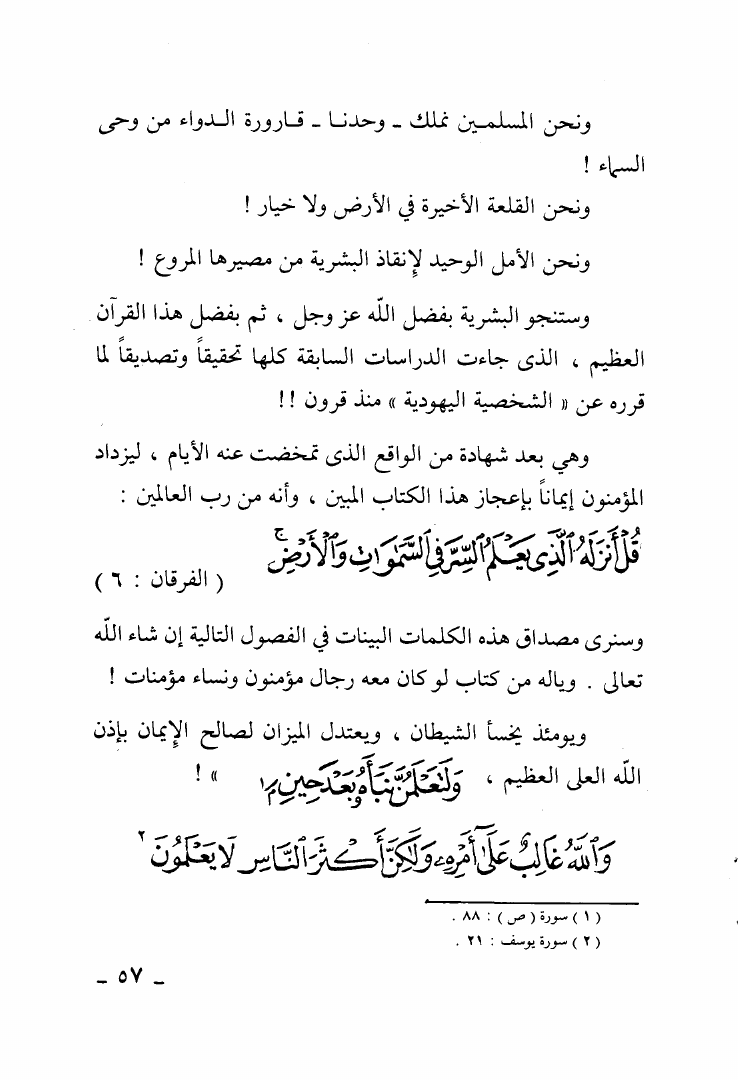 ونحن المسلمين نملك ـ وحدنا ـ قارورة الدواء من وحى
السماء !
ونحن القلعة الأخيرة في الأرض ولا خيار !
ونحن الأمل الوحيد لإنقاذ البشرية من مصيرها المروع !
وستنجو البشرية بفضل الله عز وجل ، ثم بفضل هذا القرآن
العظيم ، الذى جاءت الدراسات السابقة كلها تحقيقاً وتصديقاً لما
قرره عن « الشخصية اليهودية » منذ قرون !!
وهي بعد شهادة من الواقع الذى تمخضت عنه الأيام ، ليزداد
المؤمنون إيماناً بإعجاز هذا الكتاب المبين ، وأنه من رب العالمين :
قُلْ أَنزَلَهُ ٱلَّذِى يَعْلَمُ ٱلسِّرَّ فِى ٱلسَّمَٰوَٰتِ وَٱلْأَرْضِ ۚ
( الفرقان : ٦ )
وسنرى مصداق هذه الكلمات البينات في الفصول التالية إن شاء الله
تعالى . وياله من كتاب لو كان معه رجال مؤمنون ونساء مؤمنات !
ويومئذ يخسأ الشيطان ، ويعتدل الميزان لصالح الإيمان بإذن
الله العلى العظيم ، وَلَتَعْلَمُنَّ نَبَأَهُۥ بَعْدَ حِينٍۭ ١ » !
وَٱللَّهُ غَالِبٌ عَلَىٰٓ أَمْرِهِۦ وَلَٰكِنَّ أَكْثَرَ ٱلنَّاسِ لَا يَعْلَمُونَ ٢
( ١ ) سورة ( ص ) : ٨٨ .
( ٢ ) سورة يوسف : ٢١ .
ـ ٥٧ ـ